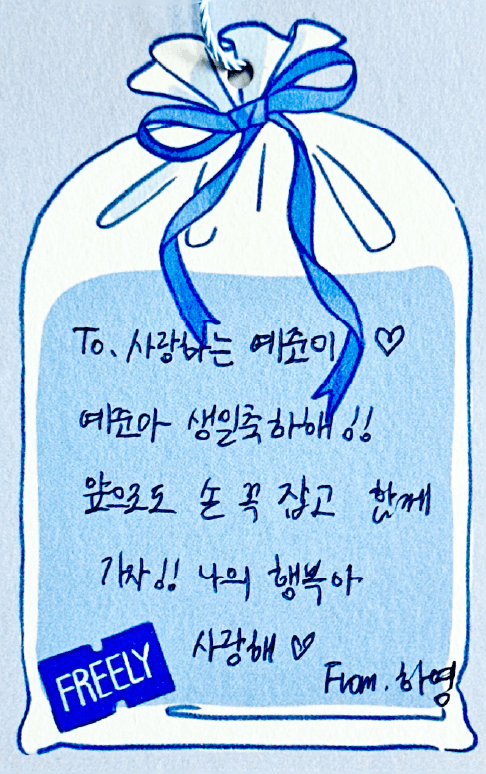 To. 사랑하는 예준이 ♡
예준아 생일축하해!!
앞으로도 손 꼭 잡고 함께
가자!! 나의 행복아
사랑해 ♡
From. 하영
FREELY